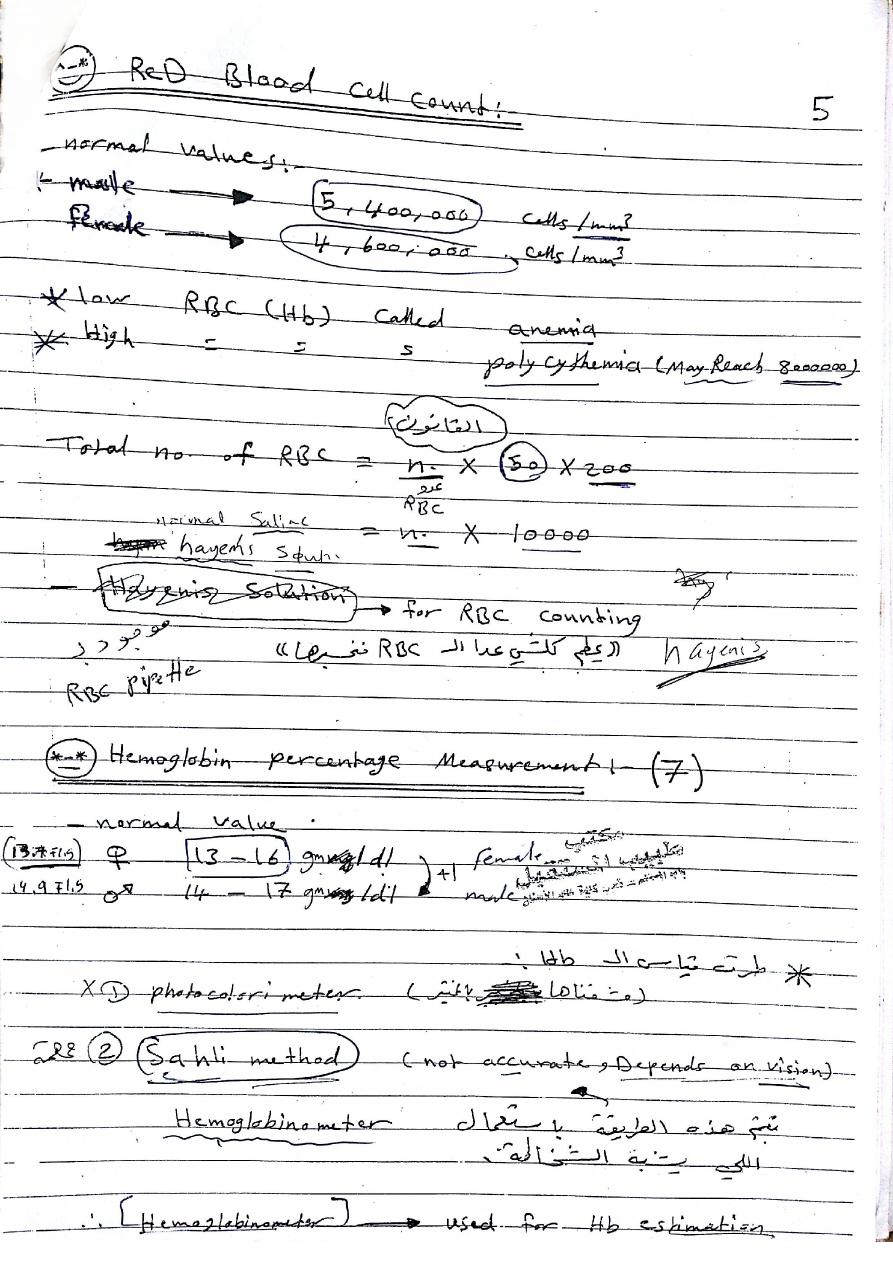 ReD Blood Cell Count:
5
- normal values:
male → 5,400,000 cells/mm³
female → 4,600,000 cells/mm³
* low RBC (Hb) called anemia
* High = = = polycythemia (May Reach 8000000)
القانون
Total no. of RBC = n. X 50 X 200
عدد
RBC
normal Saline = n. X 10000
hayem's
- Hayenis Solution → for RBC counting
موجود ب ((كلشي عدا الـ RBC)) hayenis
RBC pipette
*-* Hemoglobin percentage Measurement :- (7)
- normal value
♀ 13 - 16 gm/dl +1 female
14.9 ∓1.5 ♂ 14 - 17 gm/dl male
* طرق قياس الـ Hb :
X ① photocolorimeter.
② Sahli method (not accurate, Depends on vision)
Hemoglobinometer تتم هذه الطريقة باستعمال
اللي
∴ [Hemoglobinometer] → used for Hb estimation